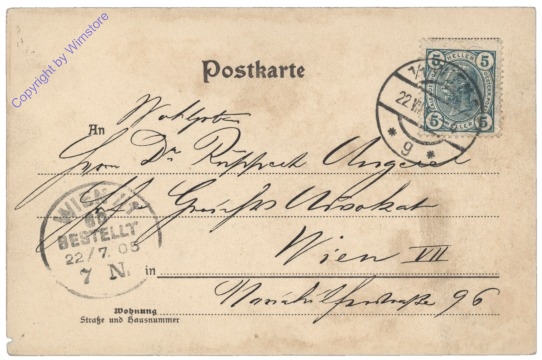 Copyright by Wimstore
Postkarte
5 HELLER 5
5 HELLER 5
1/1
22.VII
* 9 *
Wohlgeboren
An
Herrn Dr Rupprecht Ungerer
Gerichts Advokat
Wien VII
in
Mariahilferstraße 96
WIEN
BESTELLT
22/7.05
7 N.
Wohnung
Straße und Hausnummer